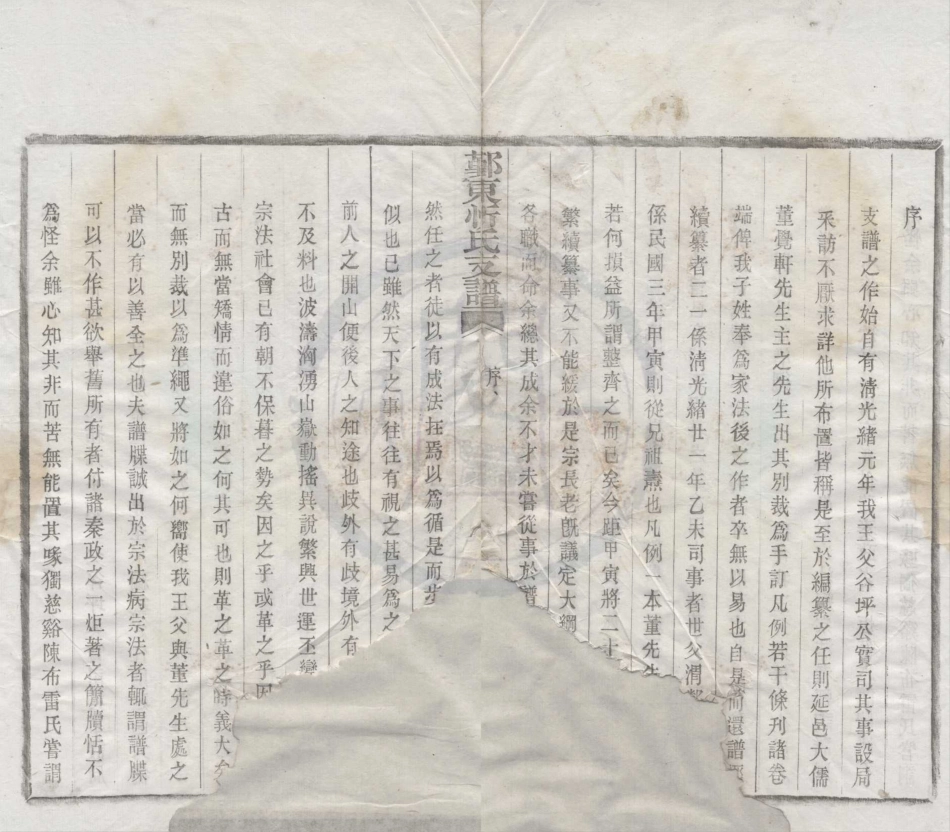 序
支譜之作始自有淸光緒元年我王父谷坪公實司其事設局
采訪不厭求詳他所布置皆稱是至於編纂之任則延邑大儒
董覺軒先生主之先生出其別裁爲手訂凡例若干條刋諸卷
端俾我子姓奉爲家法後之作者卒無以易也自是而還譜
續纂者二一係淸光緒廿一年乙未司事者世父渭
係民國三年甲寅則從兄祖燾也凡例一本董先生
若何損益所謂整齊之而已矣今距甲寅將二十
繁續纂事又不能緩於是宗長老旣議定大綱
各職而命余總其成余不才未嘗從事於譜
鄞東忻氏支譜 序
然任之者徒以有成法在焉以爲循是而步
似也已雖然天下之事往往有視之甚易爲之
前人之開山便後人之知途也歧外有歧境外有
不及料也波濤洶湧山嶽動搖異說繁興世運丕變
宗法社會已有朝不保暮之勢矣因之乎或革之乎因
古而無當矯情而違俗如之何其可也則革之革之時義大矣
而無別裁以爲準繩又將如之何嚮使我王父與董先生處之
當必有以善全之也夫譜牒誠出於宗法病宗法者輒謂譜牒
可以不作甚欲舉舊所有者付諸秦政之一炬著之簡牘恬不
爲怪余雖心知其非而苦無能置其喙獨慈谿陳布雷氏嘗謂